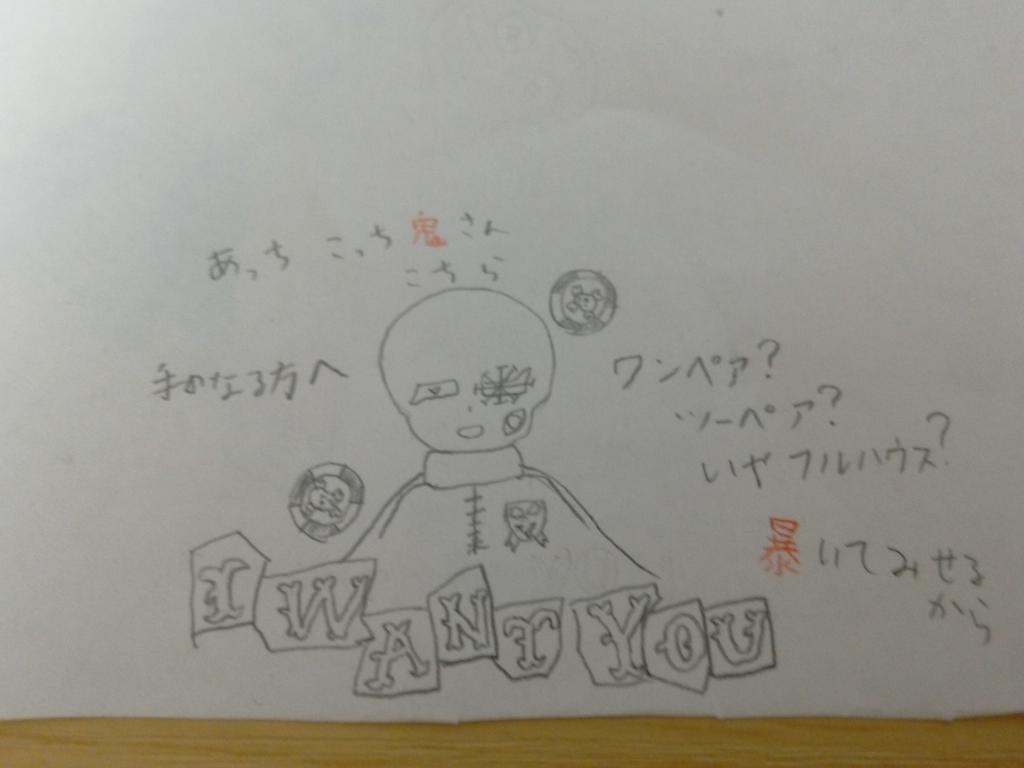 あっち こっち 鬼さん
こちら
手のなる方へ
ワンペア?
ツーペア?
いや フルハウス?
暴いてみせる
から
I WANT YOU